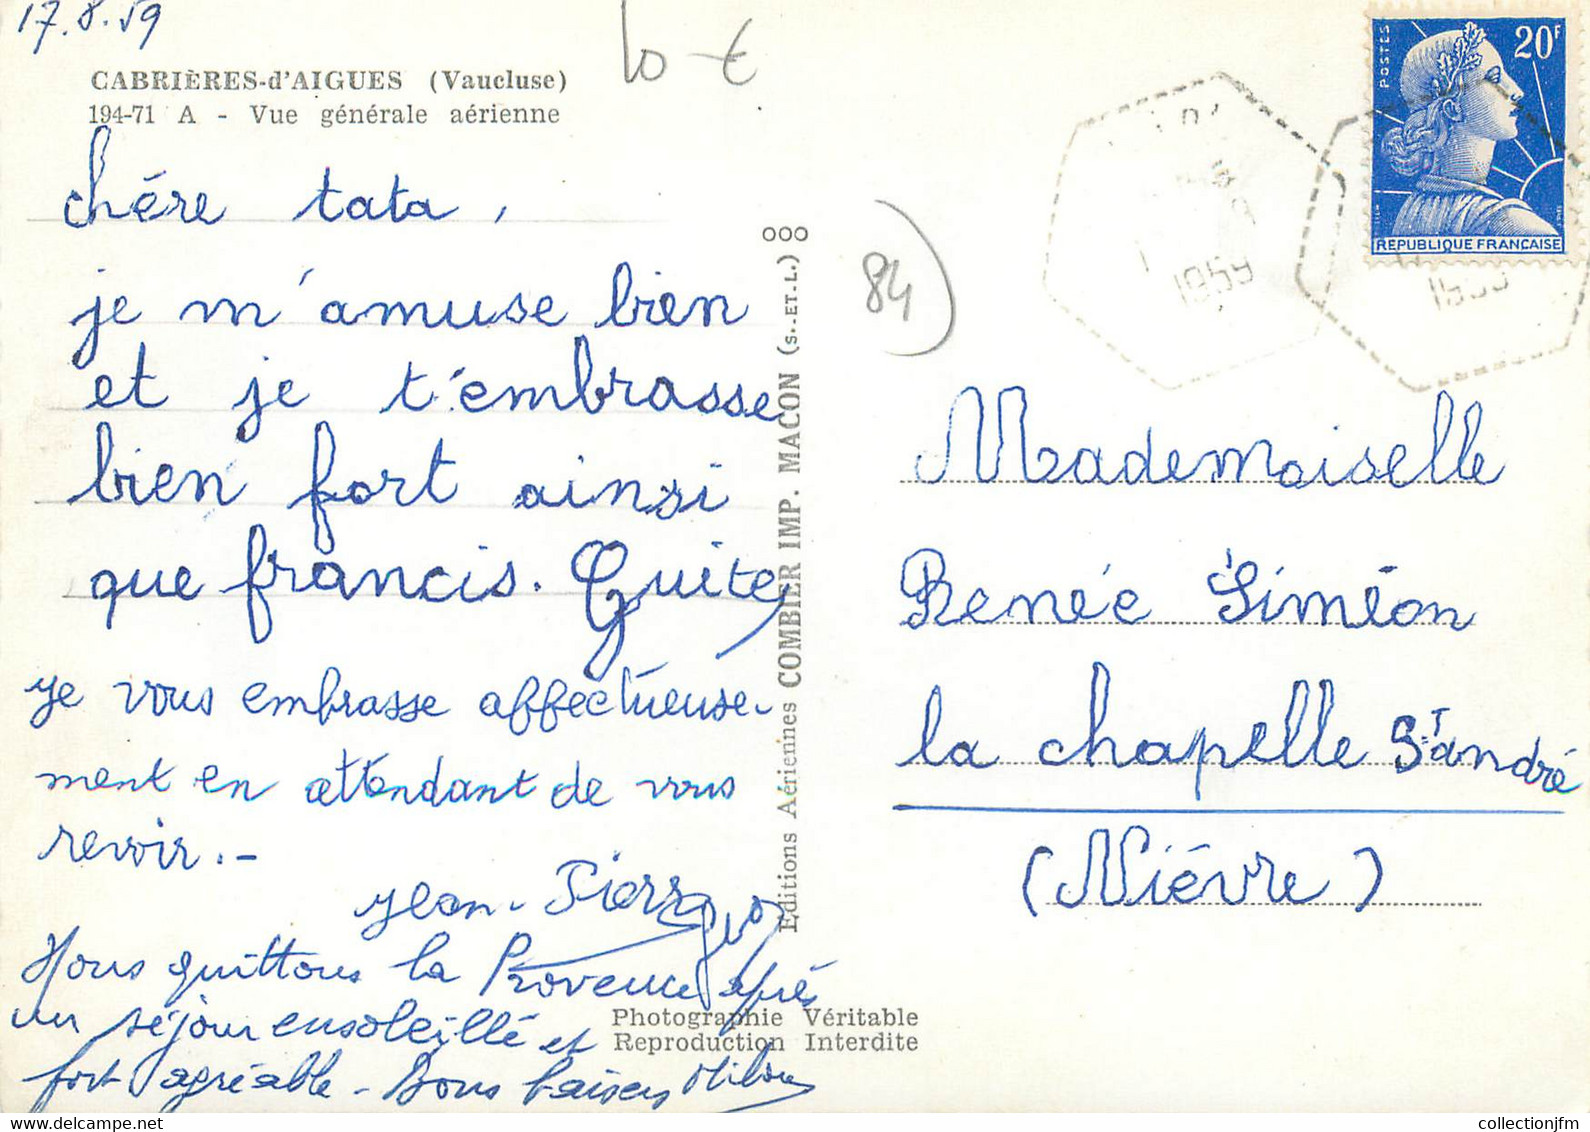 17.8.59
10 €
CABRIÈRES-d'AIGUES (Vaucluse)
194-71 A - Vue générale aérienne
chére tata,
je m'amuse bien
et je t'embrasse
bien fort ainsi
que francis.
je vous embrasse affectueuse-
ment en attendant de vous
revoir.-
Jean-Pierre
Nous quittons la Provence après
un séjour ensoleillé et
fort agréable - Bons baisers
Editions Aériennes COMBIER IMP. MACON (S.-ET-L.) OOO
Photographie Véritable
Reproduction Interdite
84
POSTES
20F
REPUBLIQUE FRANÇAISE
1959
Mademoiselle
Renée Siméon
la chapelle St andré
(Niévre)
collectionjfm